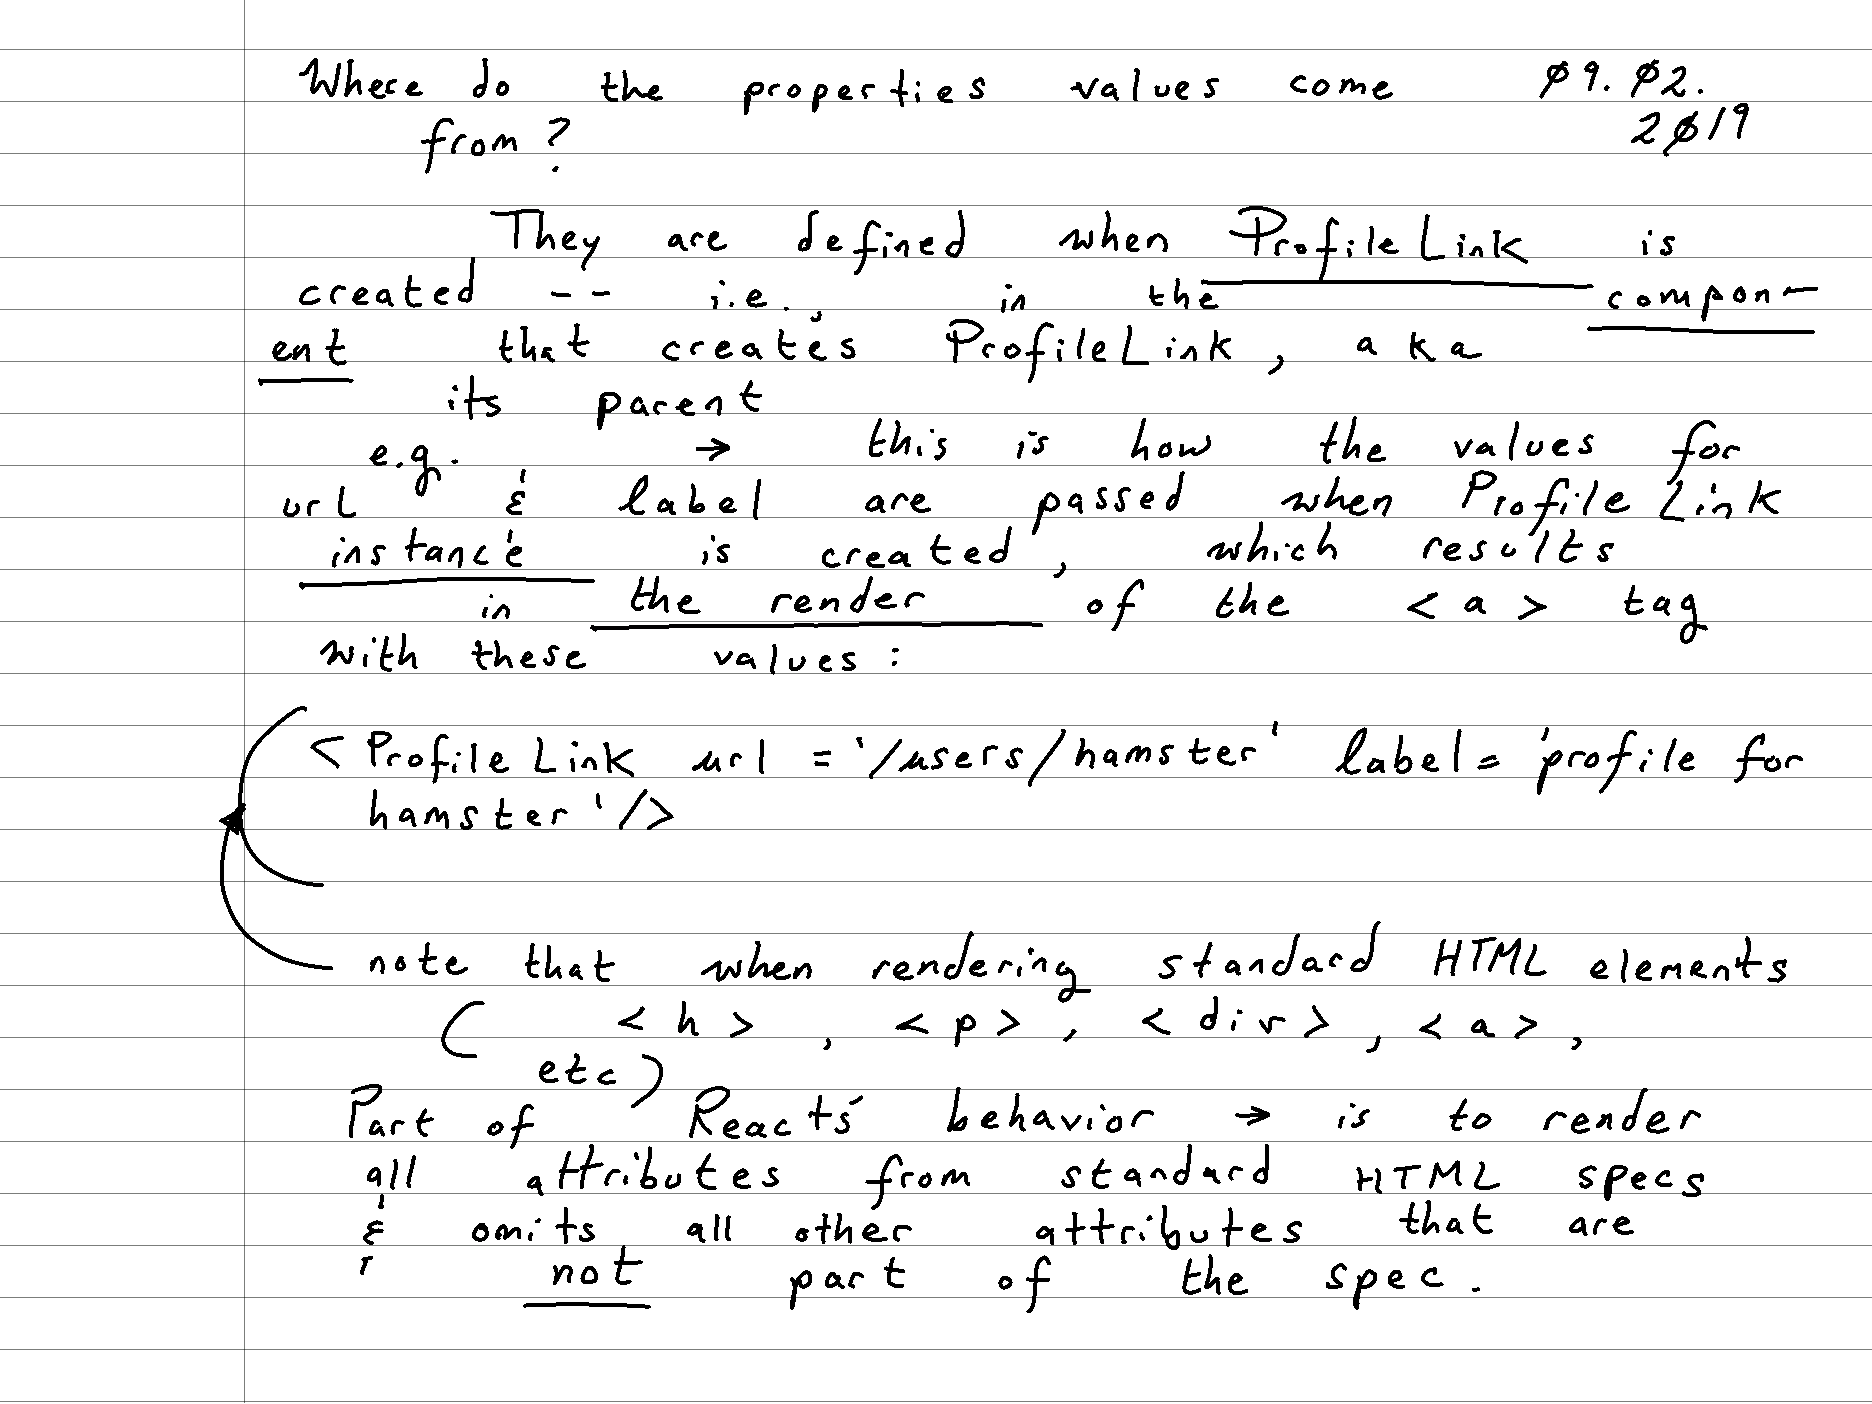 Where do the properties values come ø9. ø2.
from? 2ø19
They are defined when ProfileLink is
created -- i.e., in the compon-
ent that creates ProfileLink, aka
its parent
e.g. → this is how the values for
url & label are passed when ProfileLink
instance is created, which results
in the render of the <a> tag
with these values:
<ProfileLink url = '/users/hamster' label= 'profile for
hamster'/>
note that when rendering standard HTML elements
( <h>, <p>, <div>, <a>,
etc)
Part of React's behavior → is to render
all attributes from standard HTML specs
& omits all other attributes that are
not part of the spec.